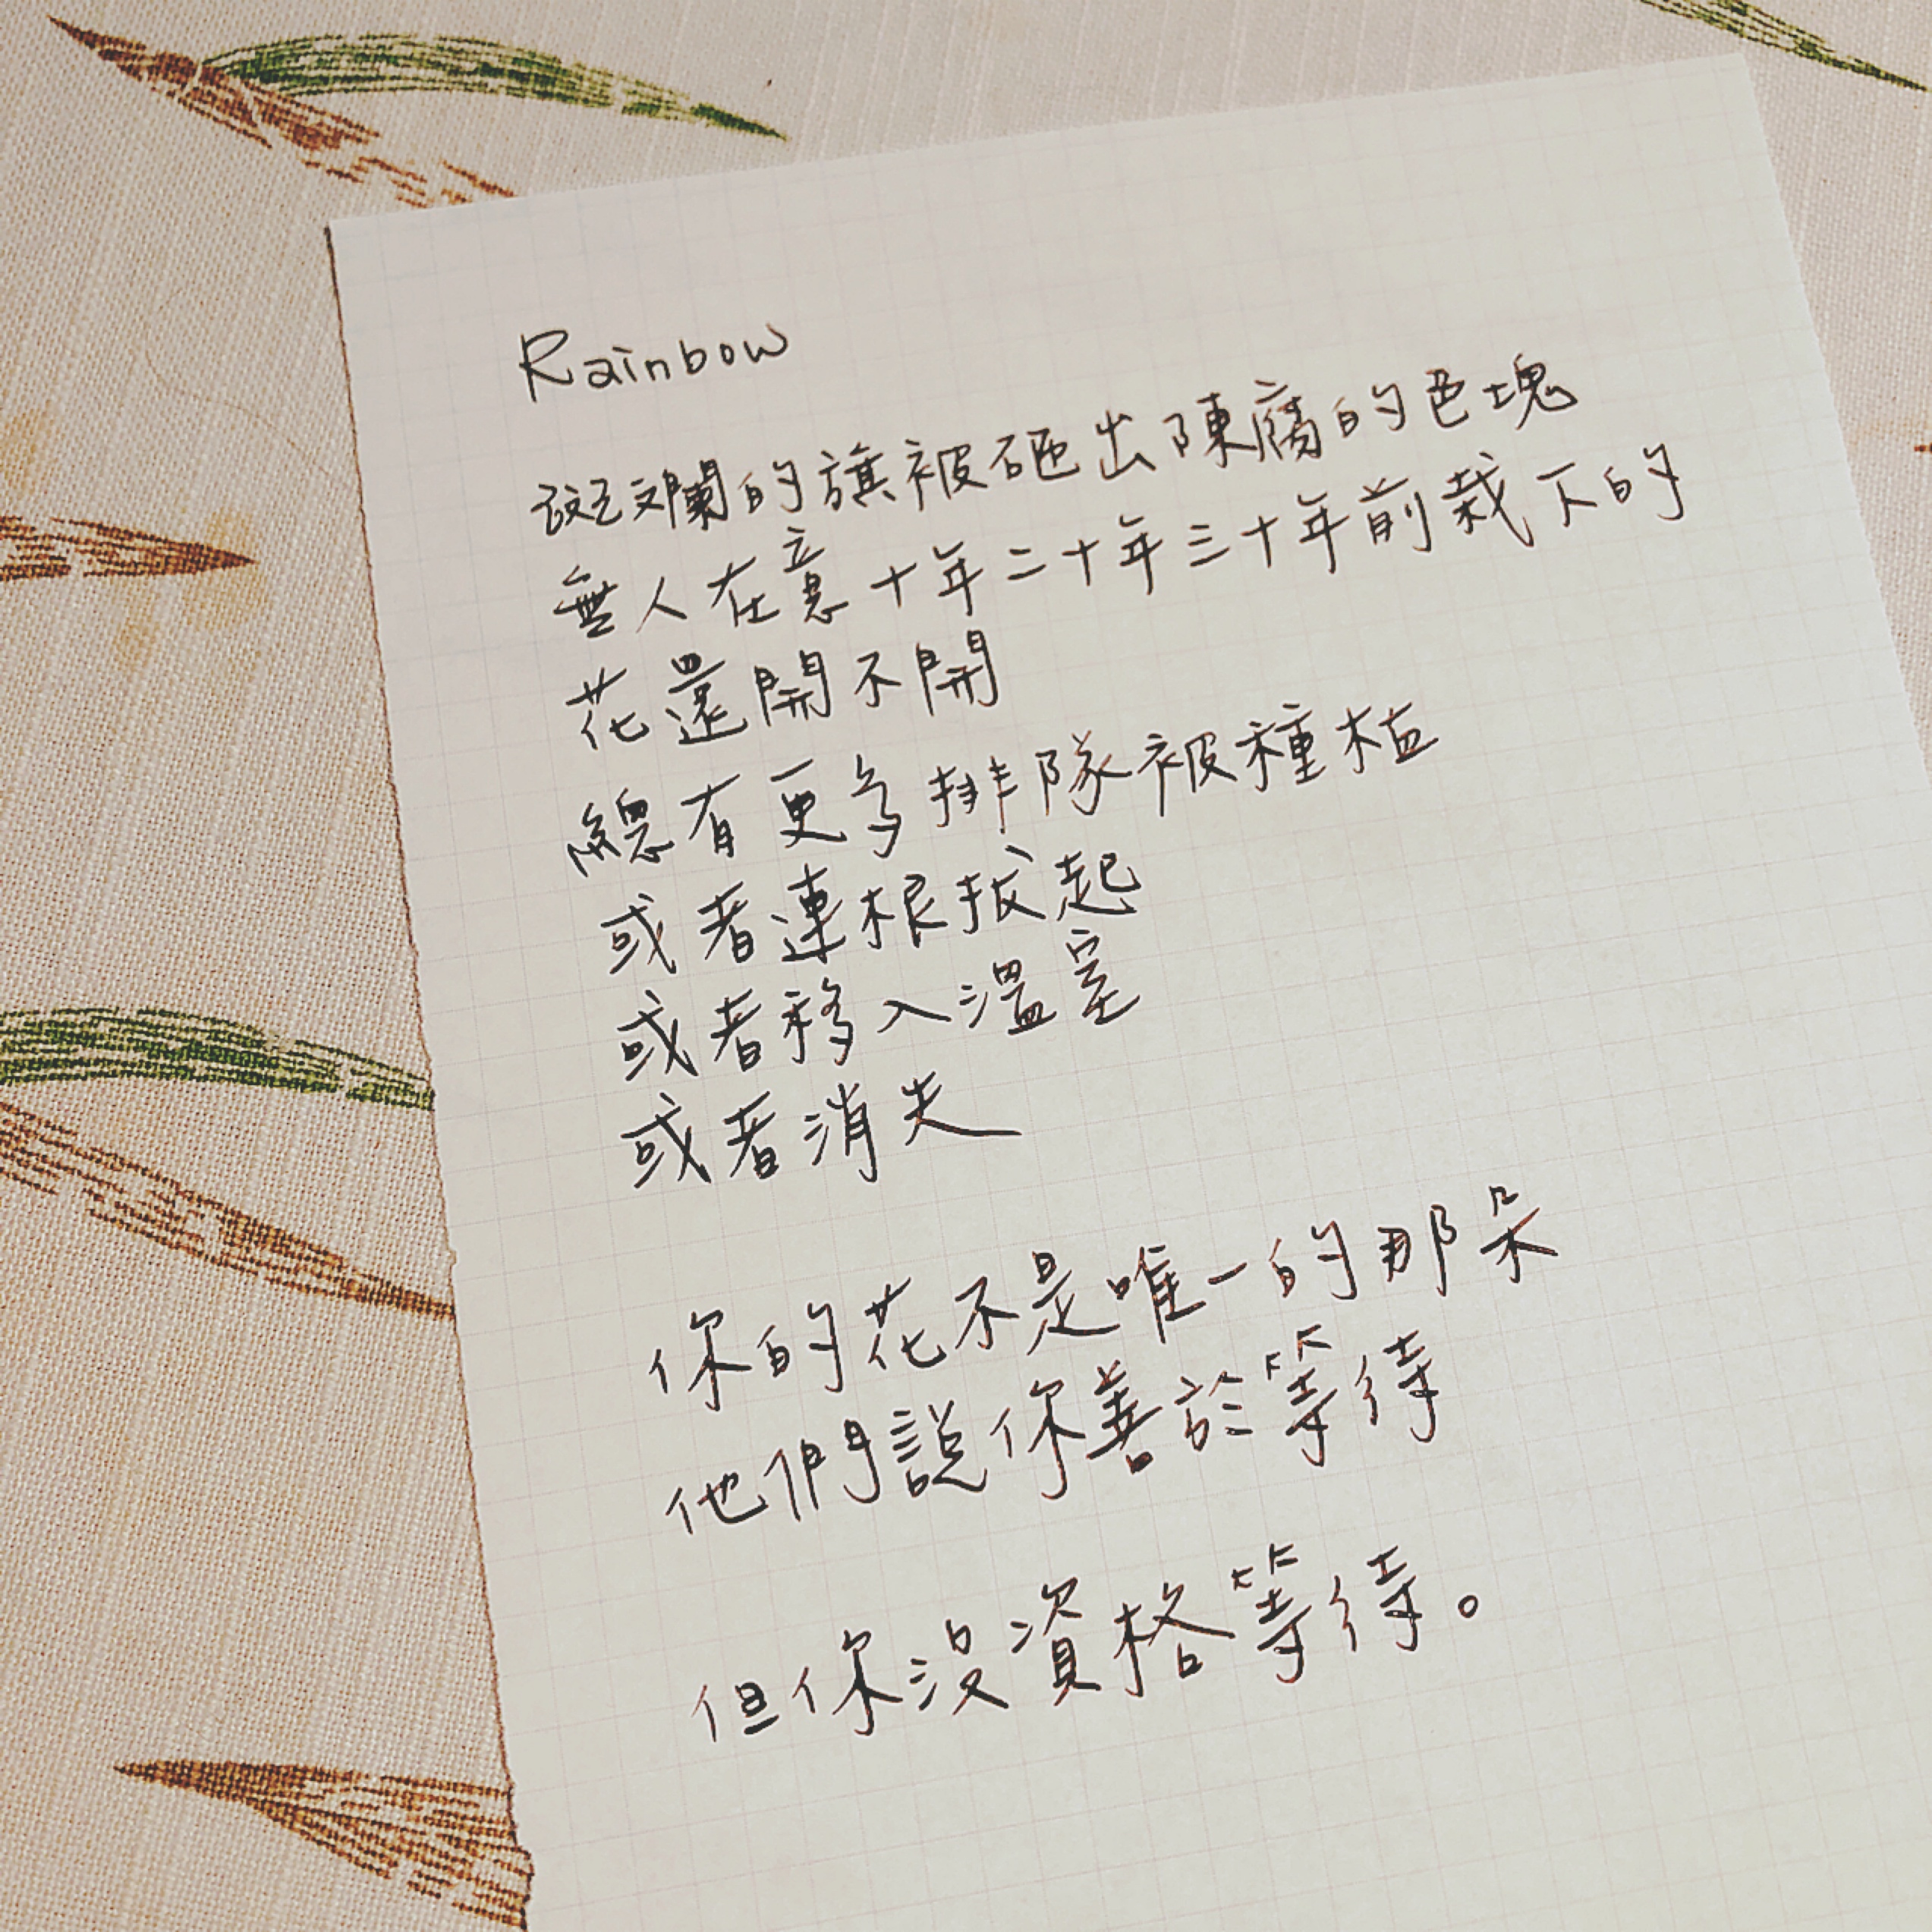 Rainbow
斑斕的旗被砸出陳腐的色塊
無人在意十年二十年三十年前栽下的
花還開不開
總有更多排隊被種植
或者連根拔起
或者移入溫室
或者消失
你的花不是唯一的那朵
他們說你善於等待
但你沒資格等待。